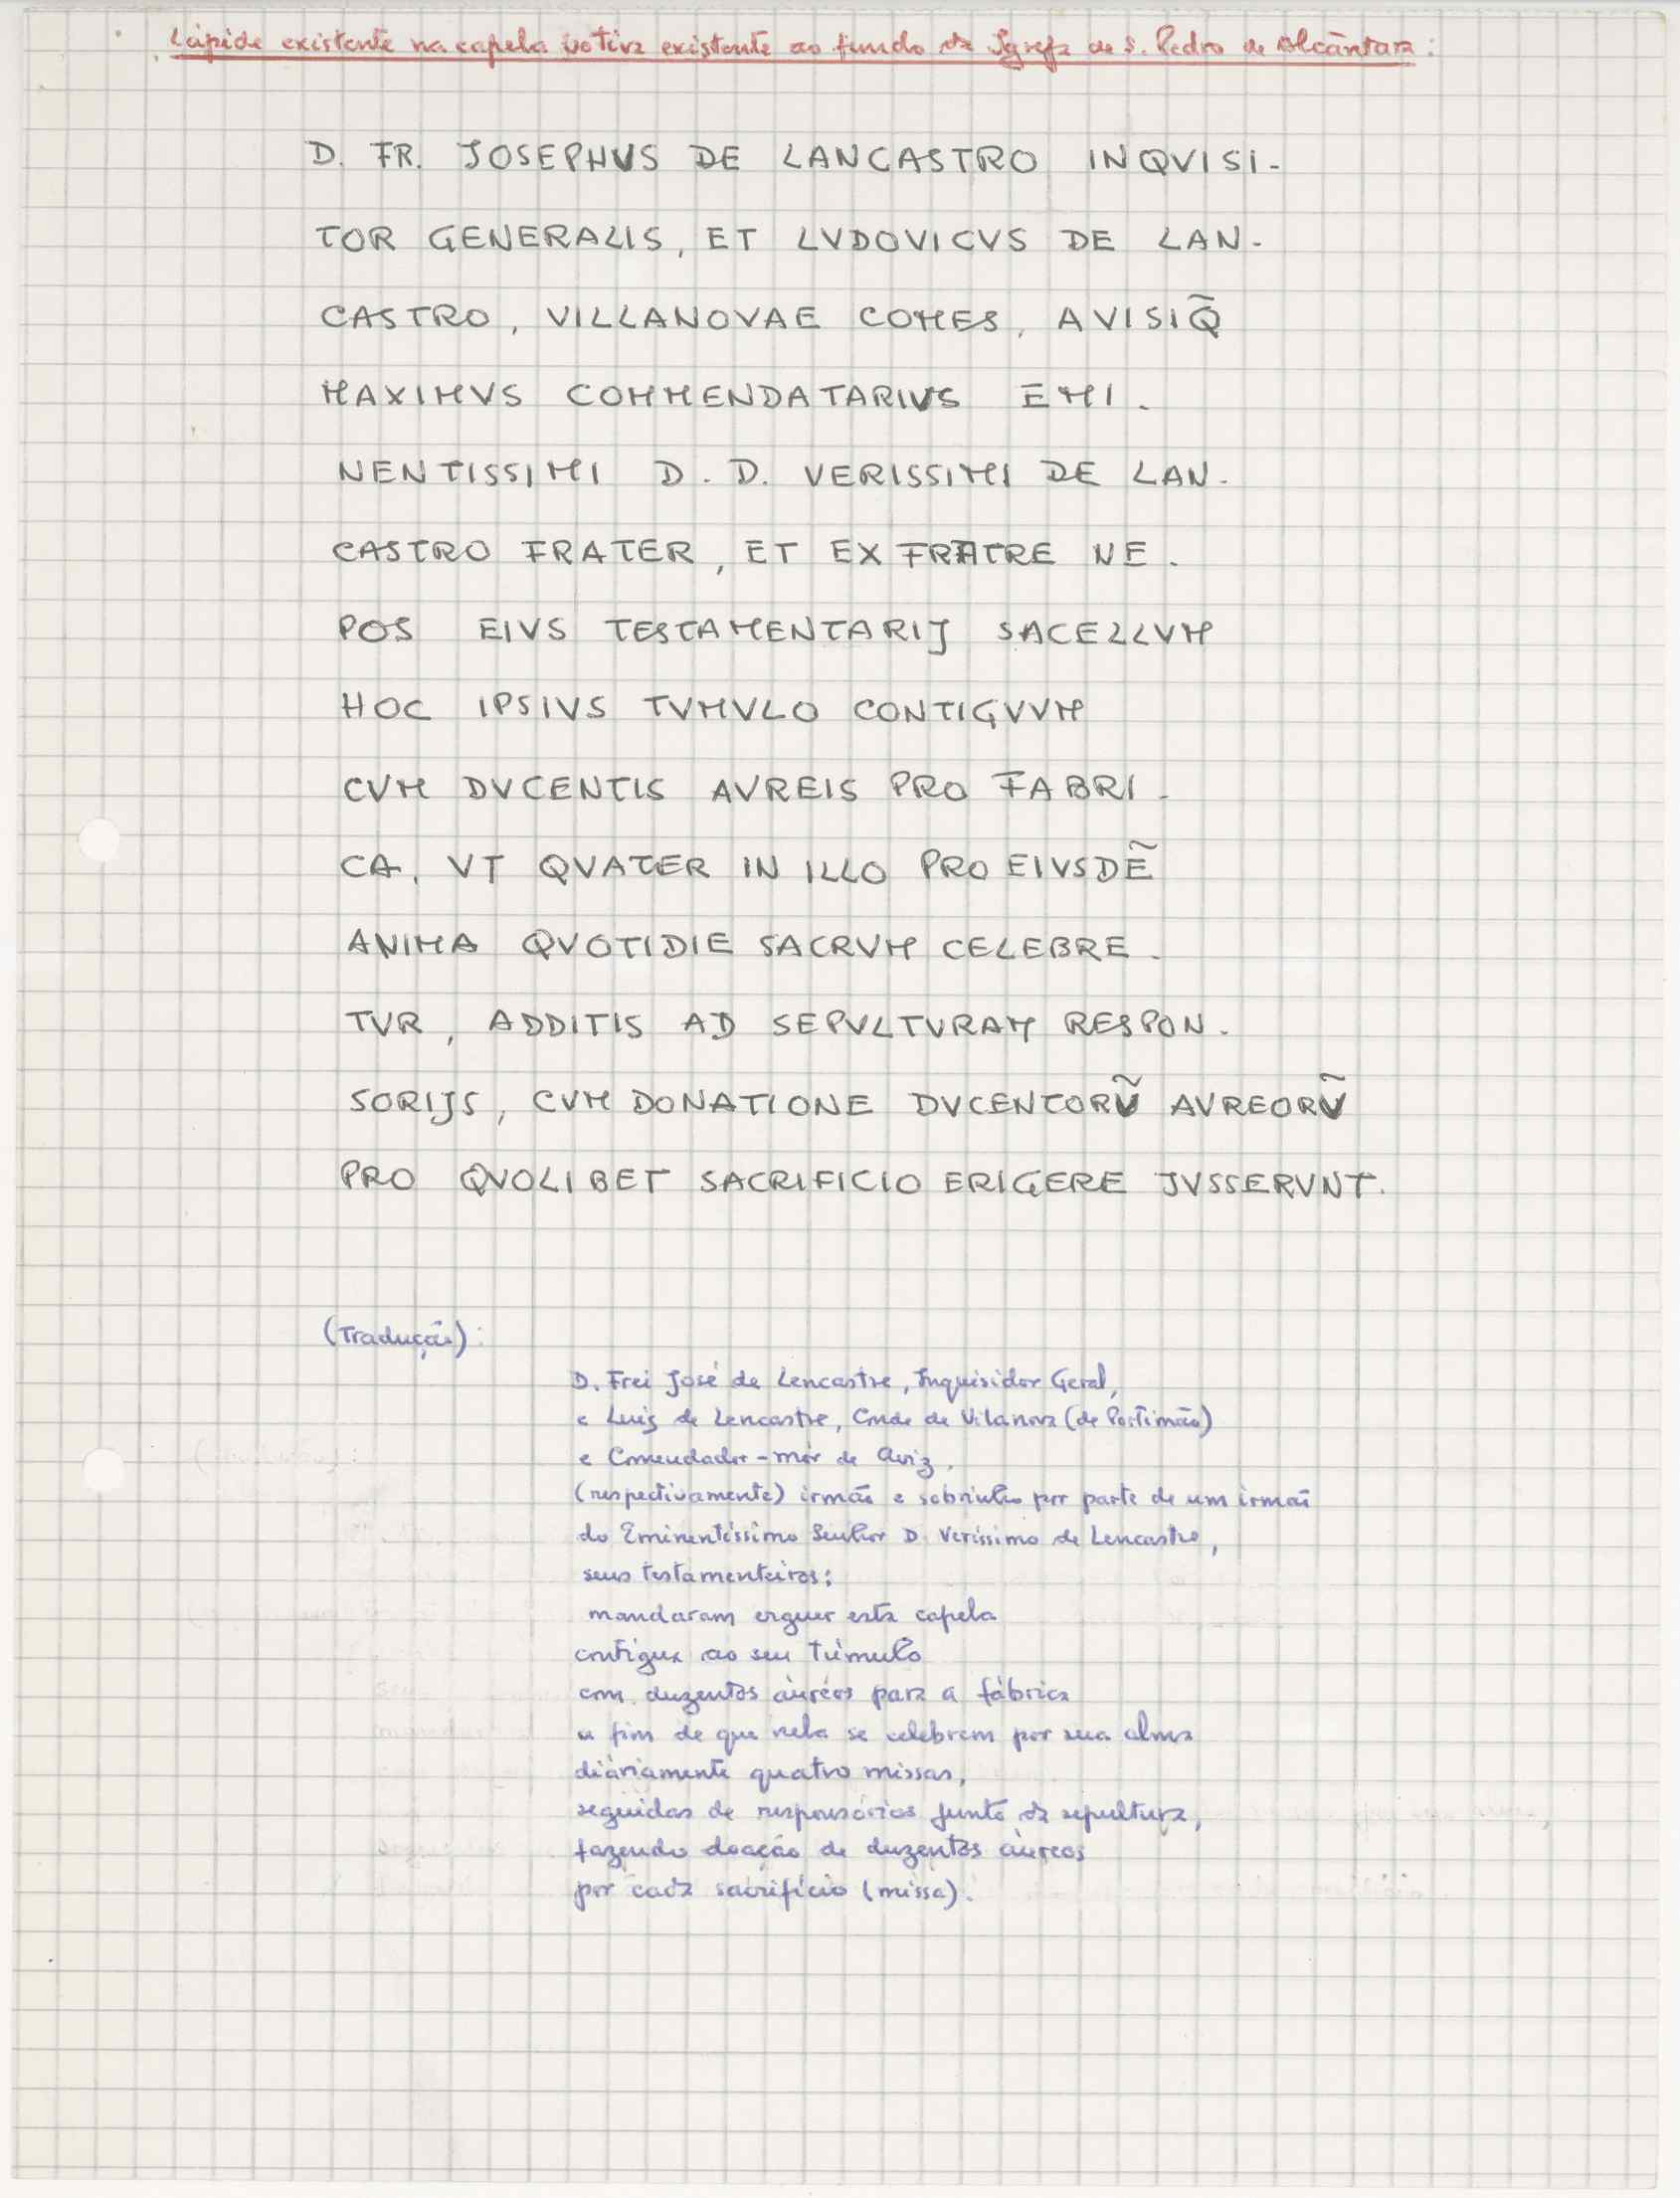 Lápide existente na capela votiva existente ao fundo da Igreja de S. Pedro de Alcântara:
D. FR. JOSEPHVS DE LANCASTRO INQVISI-
TOR GENERALIS, ET LVDOVICVS DE LAN-
CASTRO, VILLANOVAE COMES, AVISIQ̃
MAXIMVS COMMENDATARIVS EMI-
NENTISSIMI D. D. VERISSIMI DE LAN-
CASTRO FRATER, ET EX FRATRE NE-
POS EIVS TESTAMENTARIJ SACELLVM
HOC IPSIVS TVMVLO CONTIGVVM
CVM DVCENTIS AVREIS PRO FABRI-
CA, VT QVATER IN ILLO PRO EIVSDẼ
ANIMA QVOTIDIE SACRVM CELEBRE-
TVR, ADDITIS AD SEPVLTVRAM RESPON-
SORIJS, CVM DONATIONE DVCENTORṼ AVREORṼ
PRO QVOLIBET SACRIFICIO ERIGERE JVSSERVNT.
(Tradução):
D. Frei José de Lencastre, Inquisidor Geral,
e Luiz de Lencastre, Conde de Vilanova (de Portimão)
e Comendador-mór de Aviz,
(respectivamente) irmão e sobrinho por parte de um irmão
do Eminentíssimo Senhor D. Veríssimo de Lencastre,
seus testamenteiros;
mandaram erguer esta capela
contígua ao seu túmulo
com duzentos áureos para a fábrica
a fim de que nela se celebrem por sua alma
diàriamente quatro missas,
seguidas de responsórios junto da sepultura,
fazendo doação de duzentos áureos
por cada sacrifício (missa).